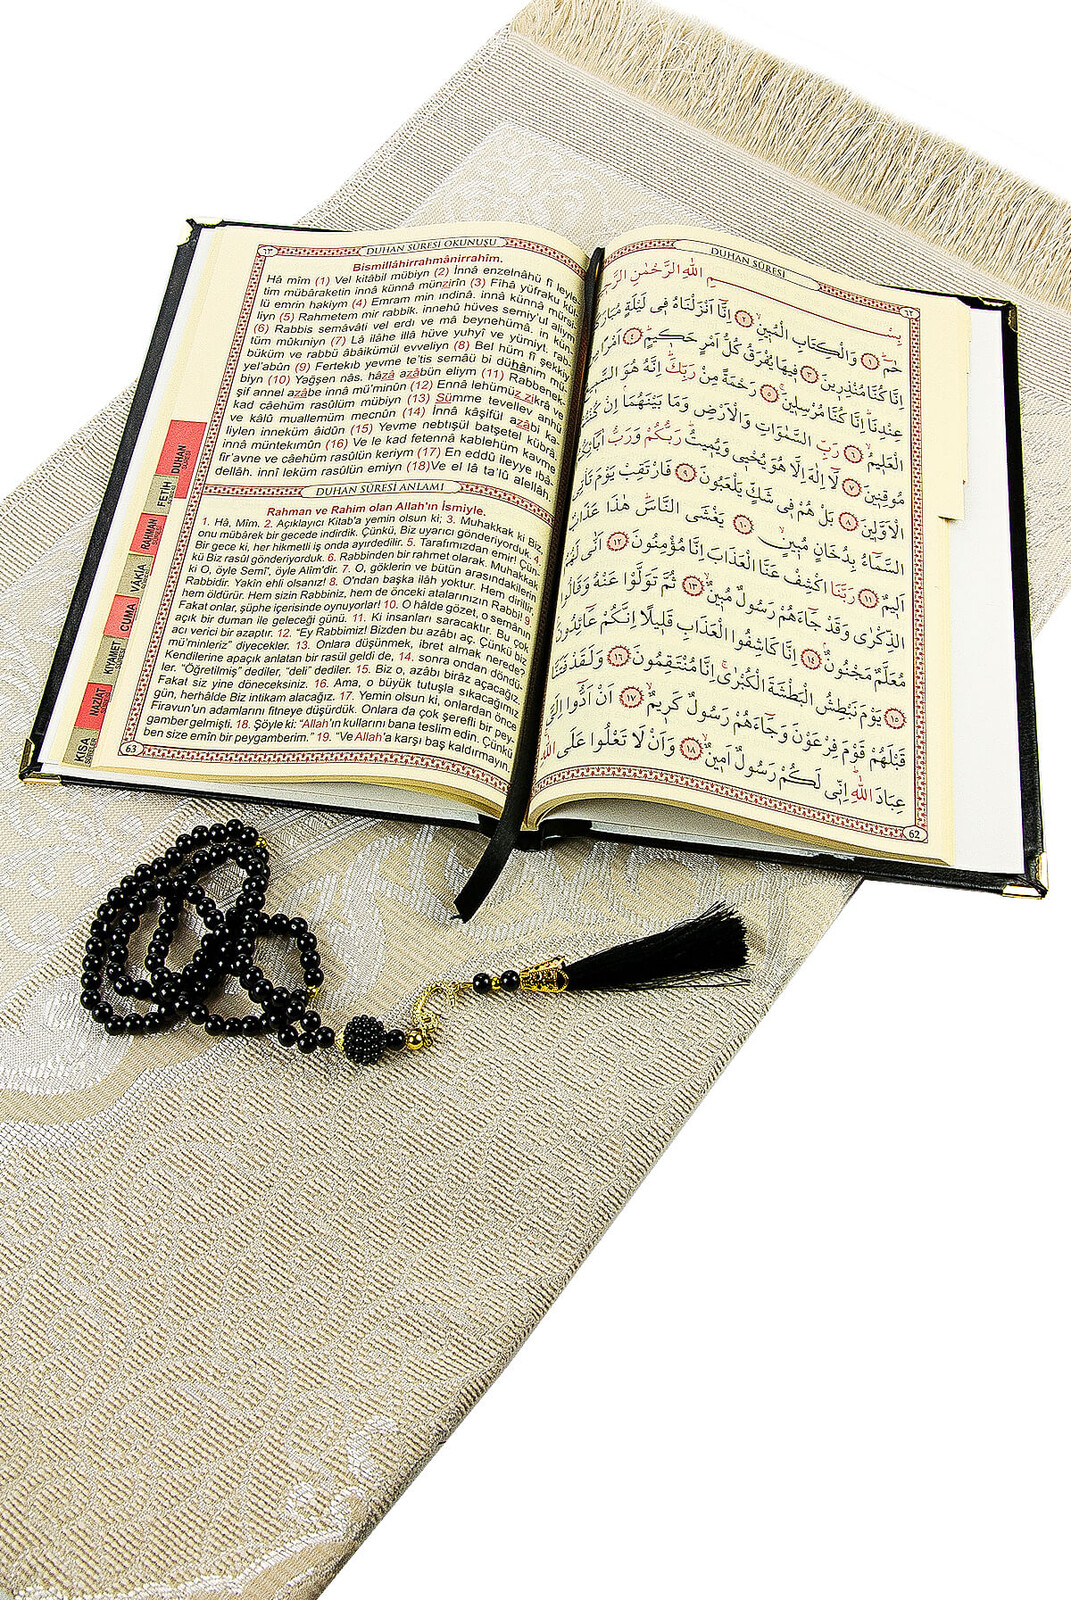 DUHAN SÛRESİ OKUNUŞU
Bismillâhirrahmânirrahîm.
Hâ mîm (1) Vel kitâbil mübiyn (2) İnnâ enzelnâhü fî leyle-
tim mübâraketin innâ künnâ münzirîn (3) Fîhâ yüfraku kül-
lü emrin hakiym (4) Emram min ındinâ. innâ künnâ mürsi-
liyn (5) Rahmetem mir rabbik. innehû hüves semiy'ul aliym
(6) Rabbis semâvâti vel erdı ve mâ beynehümâ. in kün-
tüm mûkıniyn (7) Lâ ilâhe illâ hüve yuhyî ve yümiyt. rab-
büküm ve rabbü âbâikümül evveliyn (8) Bel hüm fî şekkiy
yel'abûn (9) Fertekıb yevme te'tis semâü bi dühânim mü-
biyn (10) Yağşen nâs. hâzâ azâbün eliym (11) Rabbenek-
şif annel azâbe innâ mü'minûn (12) Ennâ lehümüz zikrâ ve
kad câehüm rasûlüm mübiyn (13) Sümme tevellev anhü
ve kâlû muallemüm mecnûn (14) İnnâ kâşifül azâbi ka-
liylen inneküm âidûn (15) Yevme nebtışül batşetel kübrâ.
innâ müntekımûn (16) Ve le kad fetennâ kablehüm kavme
fir'avne ve câehüm rasûlün keriym (17) En eddû ileyye ıbâ-
dellâh. innî leküm rasûlün emiyn (18) Ve el lâ ta'lû alellâh.
DUHAN SÛRESİ ANLAMI
Rahman ve Rahim olan Allah'ın İsmiyle.
1. Hâ, Mîm. 2. Açıklayıcı Kitab'a yemin olsun ki; 3. Muhakkak ki Biz,
onu mübârek bir gecede indirdik. Çünkü, Biz uyarıcı gönderiyorduk. 4.
Bir gece ki, her hikmetli iş onda ayırdedilir. 5. Tarafımızdan emir! Çün-
kü Biz rasûl gönderiyorduk. 6. Rabbinden bir rahmet olarak. Muhakkak
ki O, öyle Semî', öyle Alîm'dir. 7. O, göklerin ve bütün arasındakilerin
Rabbidir. Yakîn ehli olsanız! 8. O'ndan başka ilâh yoktur. Hem diriltir,
hem öldürür. Hem sizin Rabbiniz, hem de önceki atalarınızın Rabbi! 9.
Fakat onlar, şüphe içerisinde oynuyorlar! 10. O hâlde gözet, o semânın
açık bir duman ile geleceği günü. 11. Ki insanları saracaktır. Bu çok
acı verici bir azaptır. 12. "Ey Rabbimiz! Bizden bu azâbı aç. Çünkü biz
mü'minleriz" diyecekler. 13. Onlara düşünmek, ibret almak nerede?
Kendilerine apaçık anlatan bir rasül geldi de, 14. sonra ondan döndü-
ler. "Öğretilmiş" dediler, "deli" dediler. 15. Biz o, azabı birâz açacağız,
Fakat siz yine döneceksiniz. 16. Ama, o büyük tutuşla sıkacağımız
gün, herhâlde Biz intikam alacağız. 17. Yemin olsun ki, onlardan önce
Firavun'un adamlarını fitneye düşürdük. Onlara da çok şerefli bir pey-
gamber gelmişti. 18. Şöyle ki: "Allah'ın kullarını bana teslim edin. Çünkü
ben size emîn bir peygamberim." 19. "Ve Allah'a karşı baş kaldırmayın.
63
DUHAN SÛRESİ
FETİH
RAHMAN
VÂKIA
CUMA
KIYAMET
NAZİAT
KISA
DUHAN SÛRESİ
٦٢
بِسْمِ اللّٰهِ الرَّحْمٰنِ
حٰمٓ ﴿١﴾ وَالْكِتَابِ الْمُبٖينِ ﴿٢﴾ اِنَّٓا اَنْزَلْنَاهُ فٖى لَيْلَةٍ
اِنَّا كُنَّا مُنْذِرٖينَ ﴿٣﴾ فٖيهَا يُفْرَقُ كُلُّ اَمْرٍ حَكٖيمٍ ﴿٤﴾
عِنْدِنَا اِنَّا كُنَّا مُرْسِلٖينَ ﴿٥﴾ رَحْمَةً مِنْ رَبِّكَ اِنَّهُ هُوَ
الْعَلٖيمُ ﴿٦﴾ رَبِّ السَّمٰوَاتِ وَالْاَرْضِ وَمَا بَيْنَهُمَا اِنْ
مُوقِنٖينَ ﴿٧﴾ لَٓا اِلٰهَ اِلَّا هُوَ يُحْيٖى وَيُمٖيتُ رَبُّكُمْ وَرَبُّ
الْاَوَّلٖينَ ﴿٨﴾ بَلْ هُمْ فٖى شَكٍّ يَلْعَبُونَ ﴿٩﴾ فَارْتَقِبْ يَوْمَ
السَّمَٓاءُ بِدُخَانٍ مُبٖينٍ ﴿١٠﴾ يَغْشَى النَّاسَ هٰذَا عَذَابٌ
اَلٖيمٌ ﴿١١﴾ رَبَّنَا اكْشِفْ عَنَّا الْعَذَابَ اِنَّا مُؤْمِنُونَ ﴿١٢﴾ اَنّٰى
الذِّكْرٰى وَقَدْ جَٓاءَهُمْ رَسُولٌ مُبٖينٌ ﴿١٣﴾ ثُمَّ تَوَلَّوْا عَنْهُ وَقَالُوا
مُعَلَّمٌ مَجْنُونٌ ﴿١٤﴾ اِنَّا كَاشِفُوا الْعَذَابِ قَلٖيلًا اِنَّكُمْ عَٓائِدُونَ
﴿١٥﴾ يَوْمَ نَبْطِشُ الْبَطْشَةَ الْكُبْرٰى اِنَّا مُنْتَقِمُونَ ﴿١٦﴾ وَلَقَدْ فَتَنَّا
قَبْلَهُمْ قَوْمَ فِرْعَوْنَ وَجَٓاءَهُمْ رَسُولٌ كَرٖيمٌ ﴿١٧﴾ اَنْ اَدُّٓوا
عِبَادَ اللّٰهِ اِنّٖى لَكُمْ رَسُولٌ اَمٖينٌ ﴿١٨﴾ وَاَنْ لَا تَعْلُوا عَلَى اللّٰهِ
62